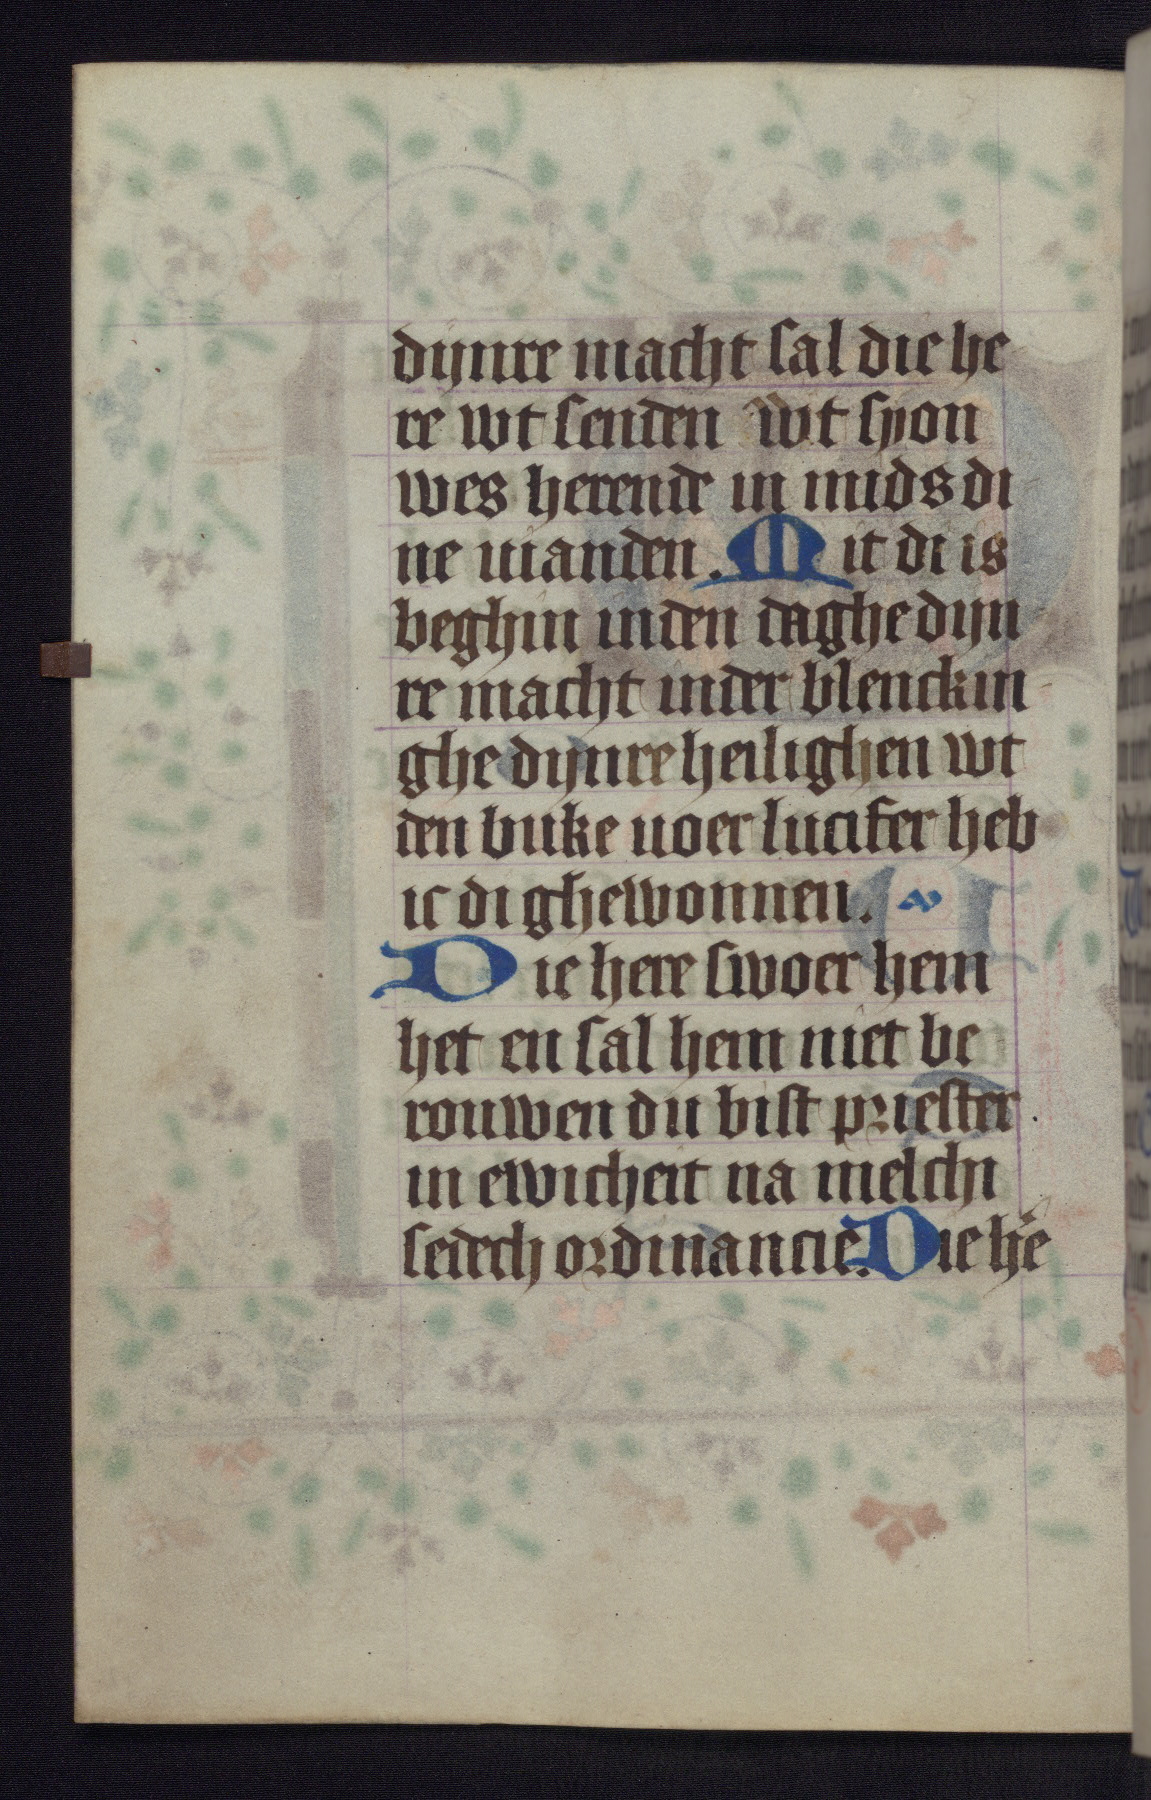 dijnre macht sal die he
re wt senden wt syon
wes herende in mids di
ne uianden. Mit di is
beghin inden daghe dijn
re macht inder blenckin
ghe dijnre heilighen wt
den buke uoer lucifer heb
ic di ghewonnen.
Die here swoer hem
het en sal hem niet be
rouwen du bist priester
in ewicheit na melchi
sedech ordinancie. Die hē